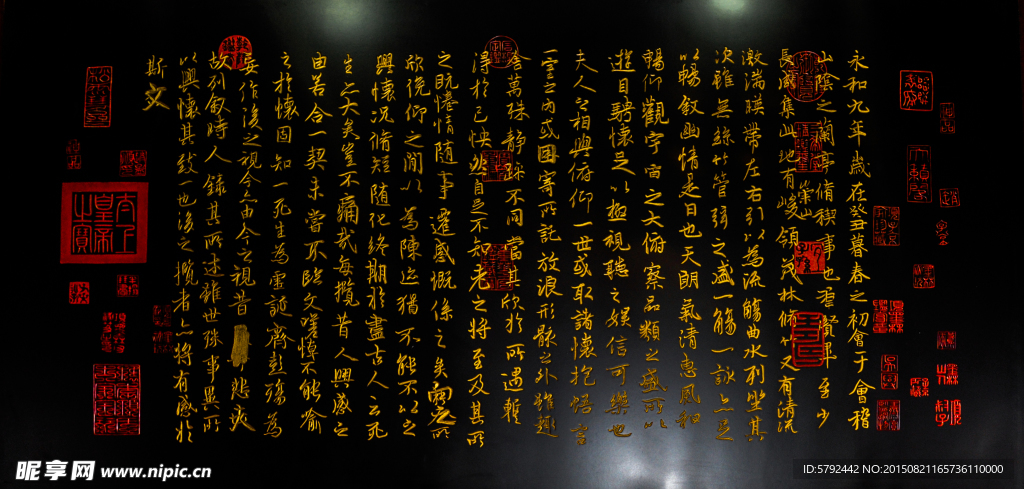 永和九年歲在癸丑暮春之初會于會稽
山陰之蘭亭脩稧事也羣賢畢至少
長咸集此地有崇山峻領茂林脩竹又有清流
激湍暎帶左右引以為流觴曲水列坐其
次雖無絲竹管弦之盛一觴一詠亦足
以暢敘幽情是日也天朗氣清惠風和
暢仰觀宇宙之大俯察品類之盛所以
遊目騁懷足以極視聽之娛信可樂也
夫人之相與俯仰一世或取諸懷抱悟言
一室之內或因寄所託放浪形骸之外雖趣
舍萬殊靜躁不同當其欣於所遇輒
得於己怏然自足不知老之將至及其所
之既惓情隨事遷感慨係之矣向之所
欣俛仰之間以為陳迹猶不能不以之
興懷況脩短隨化終期於盡古人云死
生亦大矣豈不痛哉每攬昔人興感之
由若合一契未嘗不臨文嗟悼不能喻
之於懷固知一死生為虛誕齊彭殤為
妄作後之視今亦由今之視昔悲夫
故列敘時人錄其所述雖世殊事異所
以興懷其致一也後之攬者亦將有感於
斯文
太上皇帝之寶
昵享网 www.nipic.cn
ID:5792442 NO:20150821165736110000